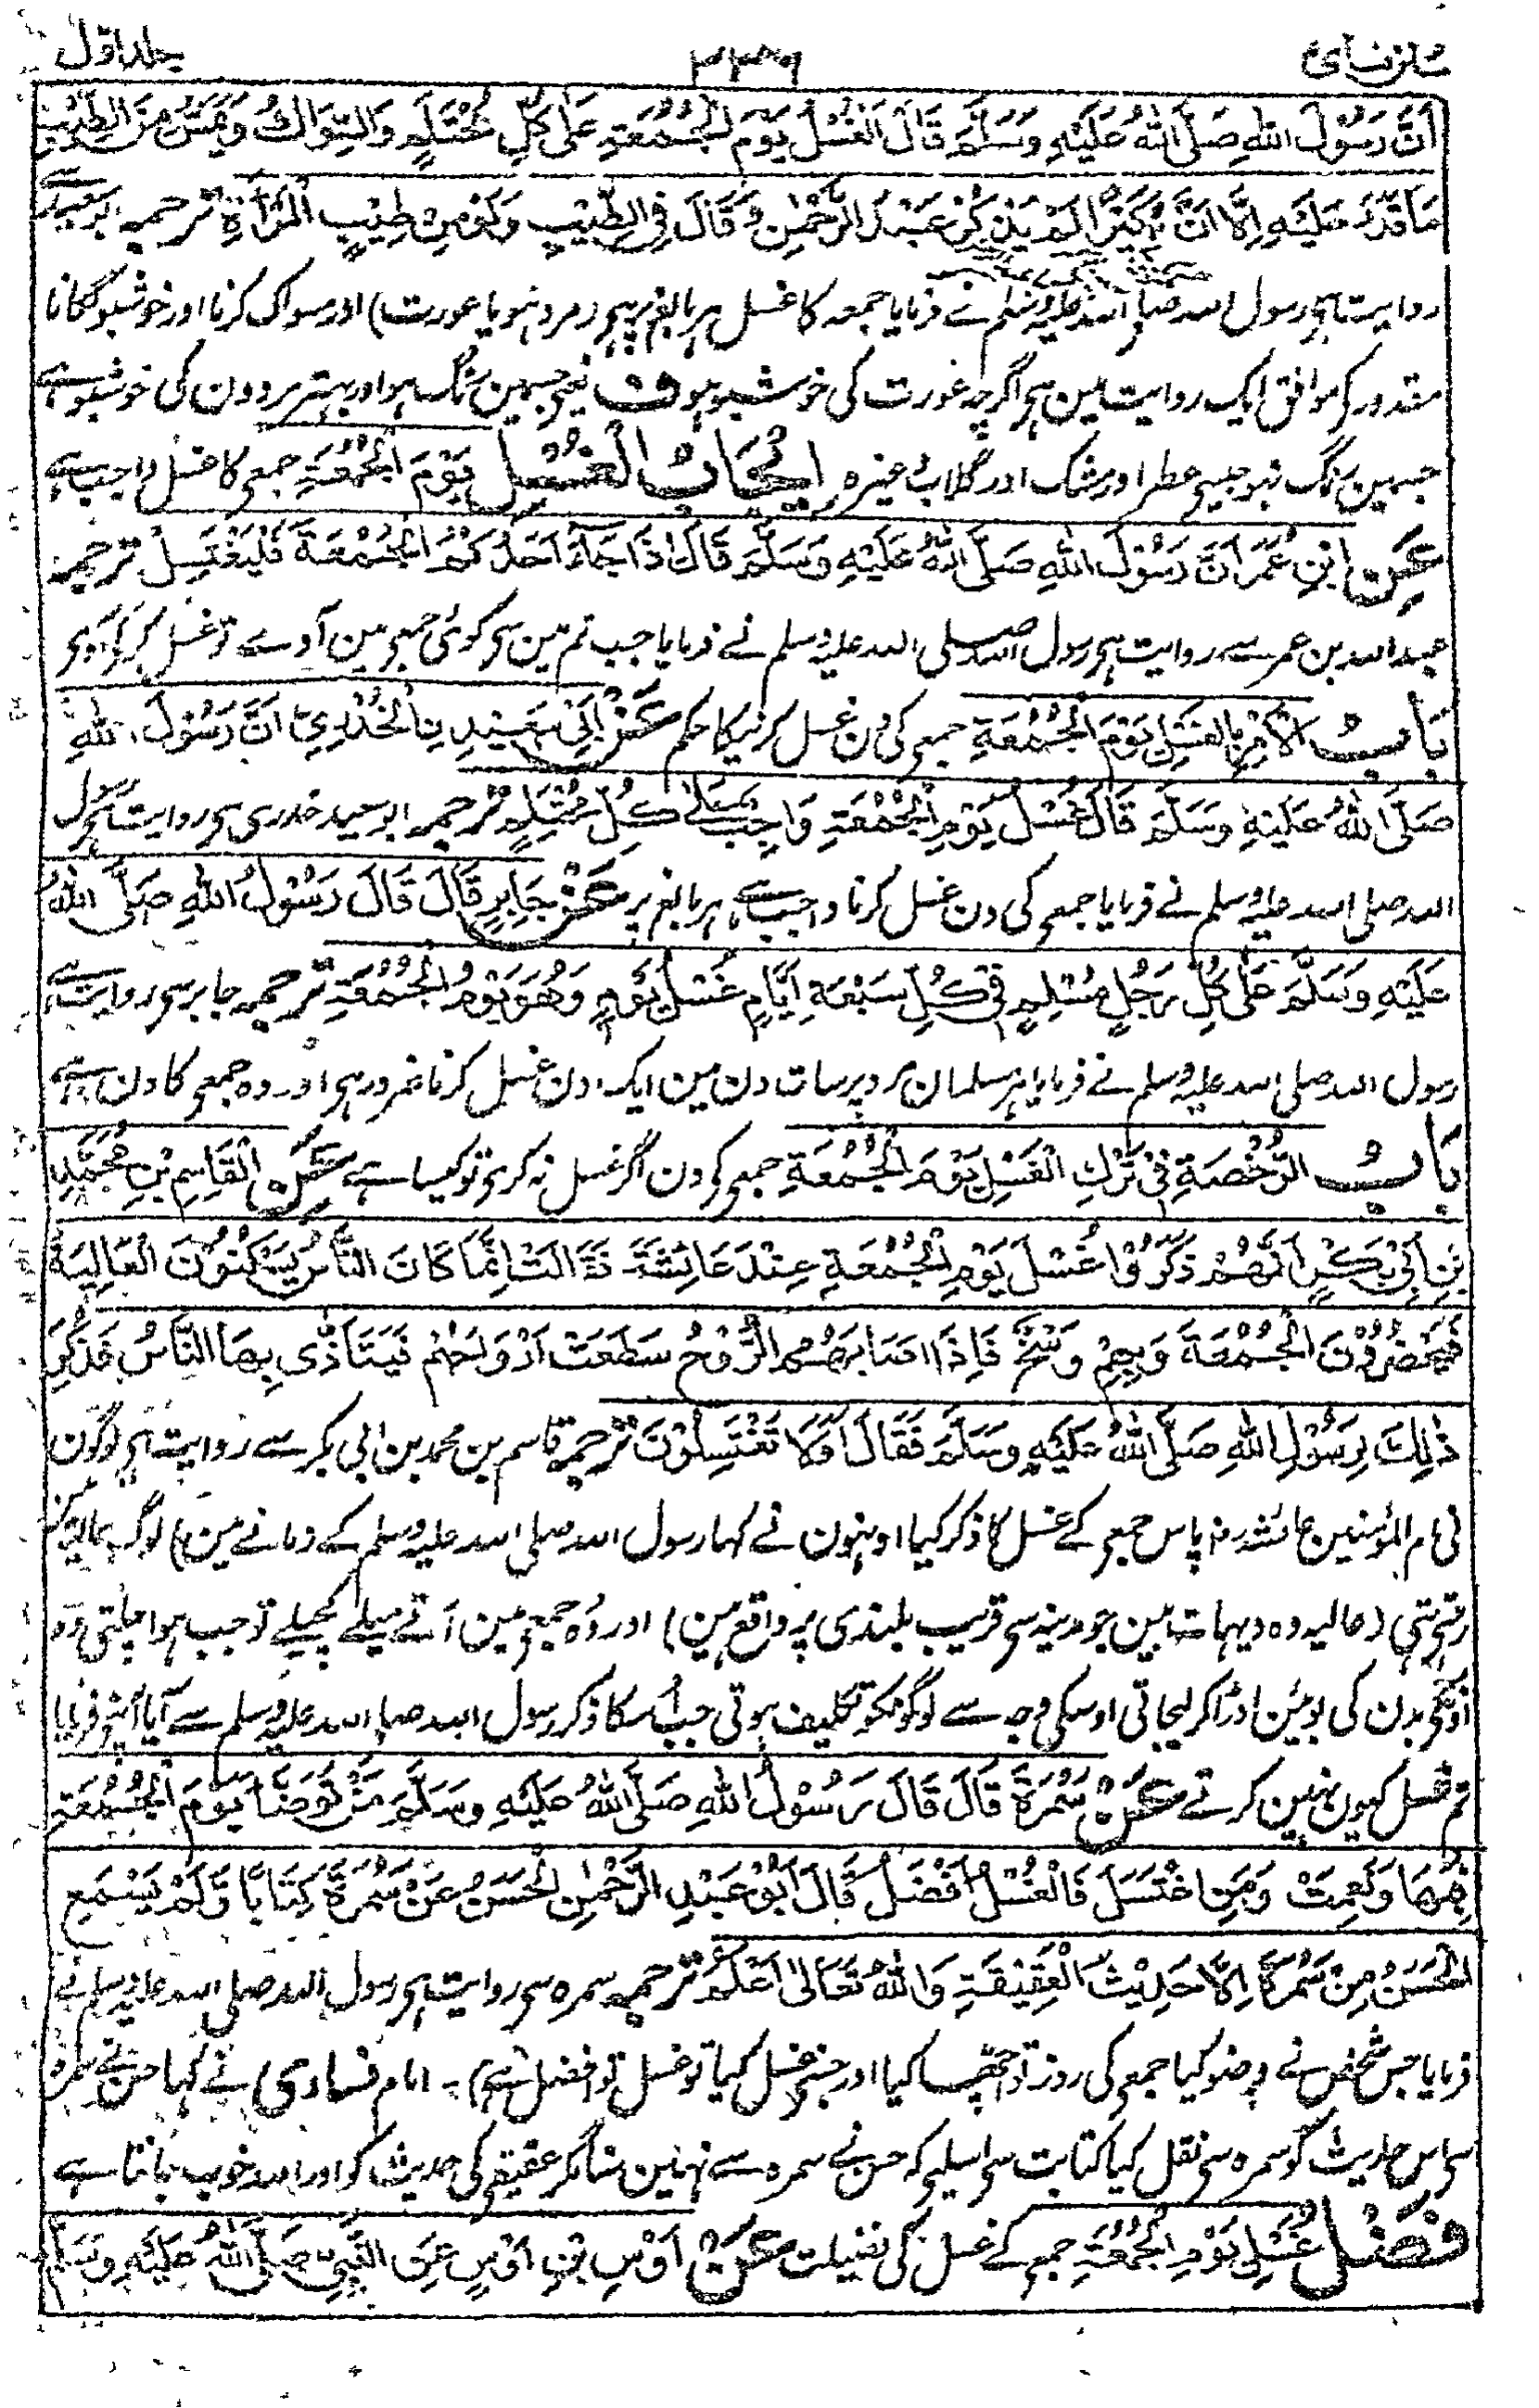 سنن نسائی ۴۳۶ جلد اول
اَنَّ رَسُوْلَ اللّٰهِ صَلَّى اللّٰهُ عَلَيْهِ وَسَلَّمَ قَالَ الْغُسْلُ يَوْمَ الْجُمُعَةِ عَلٰى كُلِّ مُحْتَلِمٍ وَالسِّوَاكُ وَيَمَسُّ مِنَ الطِّيْبِ
مَا قَدَرَ عَلَيْهِ اِلَّا اَنَّ بُكَيْرًا لَمْ يَذْكُرْ عَبْدَ الرَّحْمٰنِ وَقَالَ فِي الطِّيْبِ وَلَوْ مِنْ طِيْبِ الْمَرْأَةِ ترجمہ ابو سعید سے
روایت ہی رسول اللہ صلی اللہ علیہ وسلم نے فرمایا جمعہ کا غسل ہر بالغ پر ہی (مرد ہو یا عورت) اور مسواک کرنا اور خوشبو لگانا
مقدور کے موافق ایک روایت مین ہی اگرچہ عورت کی خوشبو ہو ف یعنی جسمین رنگ ہو اور بہتر مردون کی خوشبو ہے
جسمین رنگ نہو جیسی عطر اور مشک اور گلاب وغیرہ اِيْجَابُ الْغُسْلِ يَوْمَ الْجُمُعَةِ جمعی کا غسل واجب ہے
عَنِ ابْنِ عُمَرَ اَنَّ رَسُوْلَ اللّٰهِ صَلَّى اللّٰهُ عَلَيْهِ وَسَلَّمَ قَالَ اِذَا جَآءَ اَحَدُكُمُ الْجُمُعَةَ فَلْيَغْتَسِلْ ترجمہ
عبد اللہ بن عمر سے روایت ہی رسول اللہ صلی اللہ علیہ وسلم نے فرمایا جب تم مین سی کوئی جمعی مین آوے تو غسل کر کے آوی
بَابُ الْاَمْرِ بِالْغُسْلِ يَوْمَ الْجُمُعَةِ جمعی کی دن غسل کرنیکا حکم عَنْ اَبِيْ سَعِيْدِ نِ الْخُدْرِيِّ اَنَّ رَسُوْلَ اللّٰهِ
صَلَّى اللّٰهُ عَلَيْهِ وَسَلَّمَ قَالَ غُسْلُ يَوْمِ الْجُمُعَةِ وَاجِبٌ عَلٰى كُلِّ مُحْتَلِمٍ ترجمہ ابو سعید خدری سی روایت ہی رسول
اللہ صلی اللہ علیہ وسلم نے فرمایا جمعی کی دن غسل کرنا واجب ہے ہر بالغ پر عَنْ جَابِرٍ قَالَ قَالَ رَسُوْلُ اللّٰهِ صَلَّى اللّٰهُ
عَلَيْهِ وَسَلَّمَ عَلٰى كُلِّ رَجُلٍ مُسْلِمٍ فِيْ كُلِّ سَبْعَةِ اَيَّامٍ غُسْلُ يَوْمٍ وَهُوَ يَوْمُ الْجُمُعَةِ ترجمہ جابر سی روایت ہے
رسول اللہ صلی اللہ علیہ وسلم نے فرمایا ہر مسلمان مرد پر سات دن مین ایک دن غسل کرنا ضرور ہی اور وہ جمعی کا دن ہے
بَابُ الرُّخْصَةِ فِيْ تَرْكِ الْغُسْلِ يَوْمَ الْجُمُعَةِ جمعی کی دن اگر غسل نہ کری تو کیسا ہے عَنِ الْقَاسِمِ بْنِ مُحَمَّدِ
بْنِ اَبِيْ بَكْرٍ اَنَّهُمْ ذَكَرُوْا غُسْلَ يَوْمِ الْجُمُعَةِ عِنْدَ عَائِشَةَ فَقَالَتْ اِنَّمَا كَانَ النَّاسُ يَسْكُنُوْنَ الْعَالِيَةَ
فَيَحْضُرُوْنَ الْجُمُعَةَ وَبِهِمْ وَسَخٌ فَاِذَا اَصَابَهُمُ الرَّوْحُ سَطَعَتْ اَرْوَاحُهُمْ فَيَتَاَذّٰى بِهَا النَّاسُ فَذُكِرَ
ذٰلِكَ لِرَسُوْلِ اللّٰهِ صَلَّى اللّٰهُ عَلَيْهِ وَسَلَّمَ فَقَالَ اَوَلَا تَغْتَسِلُوْنَ ترجمہ قاسم بن محمد بن ابی بکر سے روایت ہی لوگون
نی ام المؤمنین عائشہ رض پاس جمعی کے غسل کا ذکر کیا اونہون نے کہا رسول اللہ صلی اللہ علیہ وسلم کے زمانے مین) لوگ عالیہ مین
رہتی تہی (عالیہ وہ دیہات ہین جو مدینہ سی قریب بلندی پر واقع ہین) اور وہ جمعی مین آتے میلے کچیلے تو جب ہوا چلتی تو
اونکی بدن کی بوئین اوڑا کر لیجاتی اوسکی وجہ سے لوگونکو تکلیف ہوتی جب اسکا ذکر رسول اللہ صلی اللہ علیہ وسلم سے آیا آپنے فرمایا
تم غسل کیون نہین کرتے عَنْ سَمُرَةَ قَالَ قَالَ رَسُوْلُ اللّٰهِ صَلَّى اللّٰهُ عَلَيْهِ وَسَلَّمَ مَنْ تَوَضَّاَ يَوْمَ الْجُمُعَةِ
فَبِهَا وَنِعْمَتْ وَمَنِ اغْتَسَلَ فَالْغُسْلُ اَفْضَلُ قَالَ اَبُوْ عَبْدِ الرَّحْمٰنِ الْحَسَنُ عَنْ سَمُرَةَ كِتَابًا وَلَمْ يَسْمَعِ
الْحَسَنُ مِنْ سَمُرَةَ اِلَّا حَدِيْثَ الْعَقِيْقَةِ وَاللّٰهُ تَعَالٰى اَعْلَمُ ترجمہ سمرہ سی روایت ہی رسول اللہ صلی اللہ علیہ وسلم نے
فرمایا جس شخص نے وضو کیا جمعی کی روز تو اچھا کیا اور جسنی غسل کیا تو غسل تو افضل ہی۔ امام نسائی) نے کہا حسن نے سمرہ
سی اس حدیث کو سمرہ سی نقل کیا کتابت سی اسلیی کہ حسن نے سمرہ سے نہین سنا مگر عقیقی کی حدیث کو اور اللہ خوب جانتا ہے
فَضْلُ غُسْلِ يَوْمِ الْجُمُعَةِ جمعے کے غسل کی فضیلت عَنْ اَوْسِ بْنِ اَوْسٍ عَنِ النَّبِيِّ صَلَّى اللّٰهُ عَلَيْهِ وَسَلَّمَ